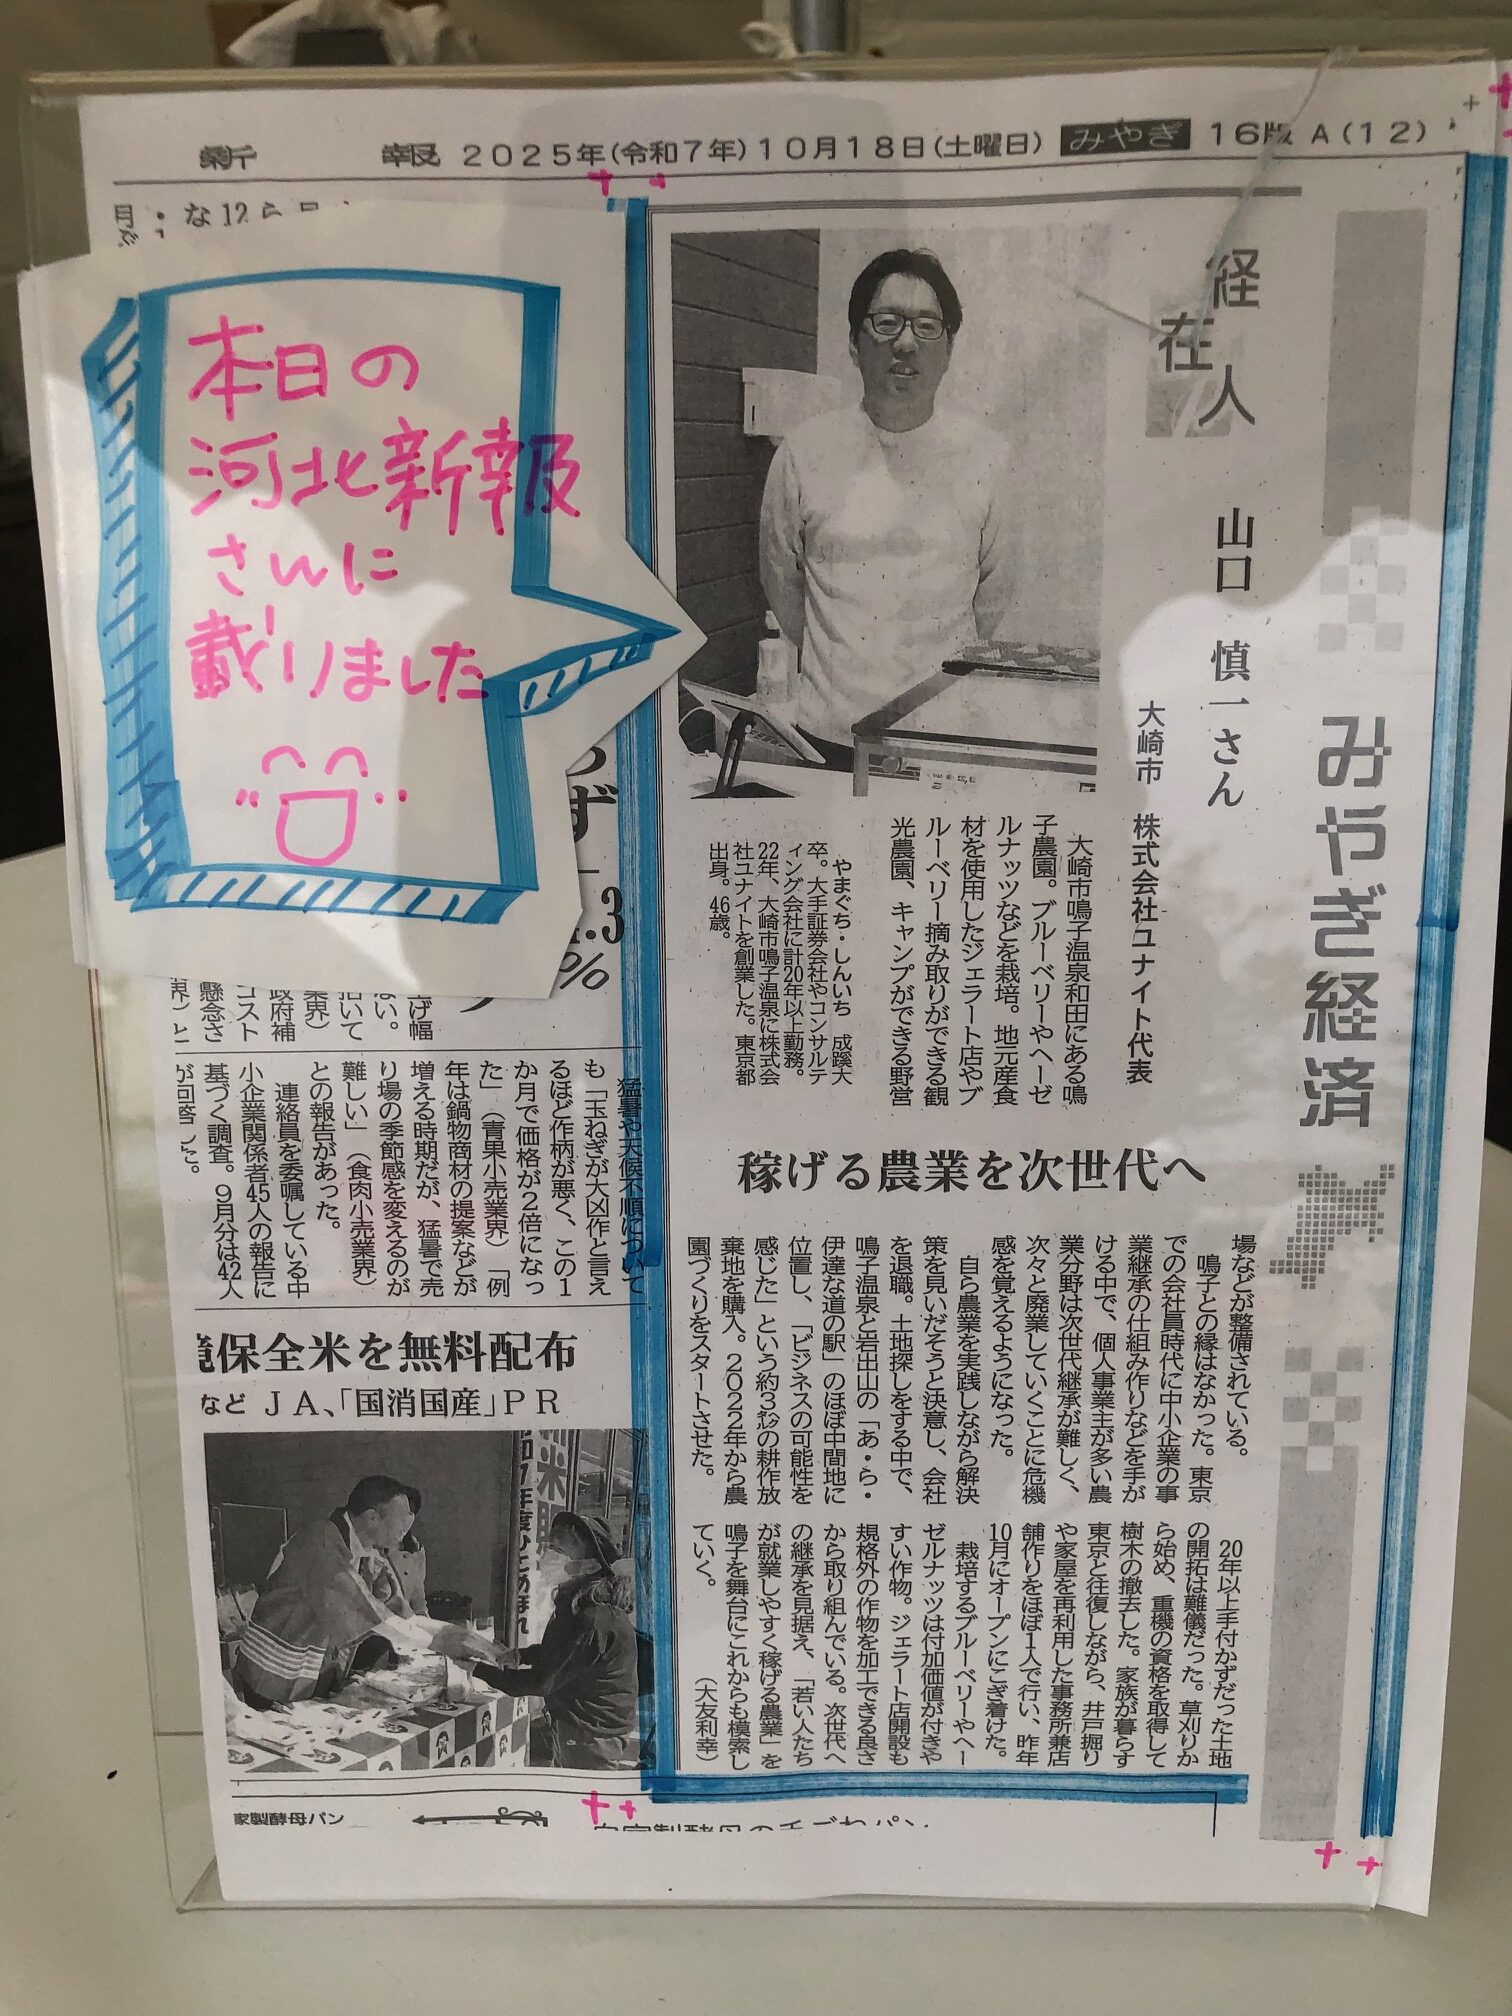 新 報 2025年(令和7年)10月18日(土曜日) みやぎ 16版 A(12)
本日の
河北新報
さんに
載りました
みやぎ経済
経済
在
人
山口 慎一さん
大崎市 株式会社ユナイト代表
大崎市鳴子温泉和田にある鳴
子農園。ブルーベリーやヘーゼ
ルナッツなどを栽培。地元産食
材を使用したジェラート店やブ
ルーベリー摘み取りができる観
光農園、キャンプができる野営
やまぐち・しんいち 成蹊大
卒。大手証券会社やコンサルテ
ィング会社に計20年以上勤務。
22年、大崎市鳴子温泉に株式会
社ユナイトを創業した。東京都
出身。46歳。
稼げる農業を次世代へ
場などが整備されている。
鳴子との縁はなかった。東京
での会社員時代に中小企業の事
業継承の仕組み作りなどを手が
ける中で、個人事業主が多い農
業分野は次世代継承が難しく、
次々と廃業していくことに危機
感を覚えるようになった。
自ら農業を実践しながら解決
策を見いだそうと決意し、会社
を退職。土地探しをする中で、
鳴子温泉と岩出山の「あ・ら・
伊達な道の駅」のほぼ中間地に
位置し、「ビジネスの可能性を
感じた」という約3㌶の耕作放
棄地を購入。2022年から農
園づくりをスタートさせた。
20年以上手付かずだった土地
の開拓は難儀だった。草刈りか
ら始め、重機の資格を取得して
樹木の撤去もした。家族が暮らす
東京と往復しながら、井戸掘り
や家屋を再利用した事務所兼店
舗作りをほぼ1人で行い、昨年
10月にオープンにこぎ着けた。
栽培するブルーベリーやヘー
ゼルナッツは付加価値が付きや
すい作物。ジェラート店開設も
規格外の作物を加工できる良さ
から取り組んでいる。次世代へ
の継承を見据え、「若い人たち
が就業しやすく稼げる農業」を
鳴子を舞台にこれからも模索し
ていく。 (大友利幸)
猛暑や天候不順について
も「玉ねぎが大凶作と言え
るほど作柄が悪く、この1
か月で価格が2倍になっ
た」(青果小売業界)「例
年は鍋物商材の提案などが
増える時期だが、猛暑で売
り場の季節感を変えるのが
難しい」(食肉小売業界)
との報告があった。
連絡員を委嘱している中
小企業関係者45人の報告に
基づく調査。9月分は42人
が回答した。
保全米を無料配布
など JA、「国消国産」PR
家製酵母パン